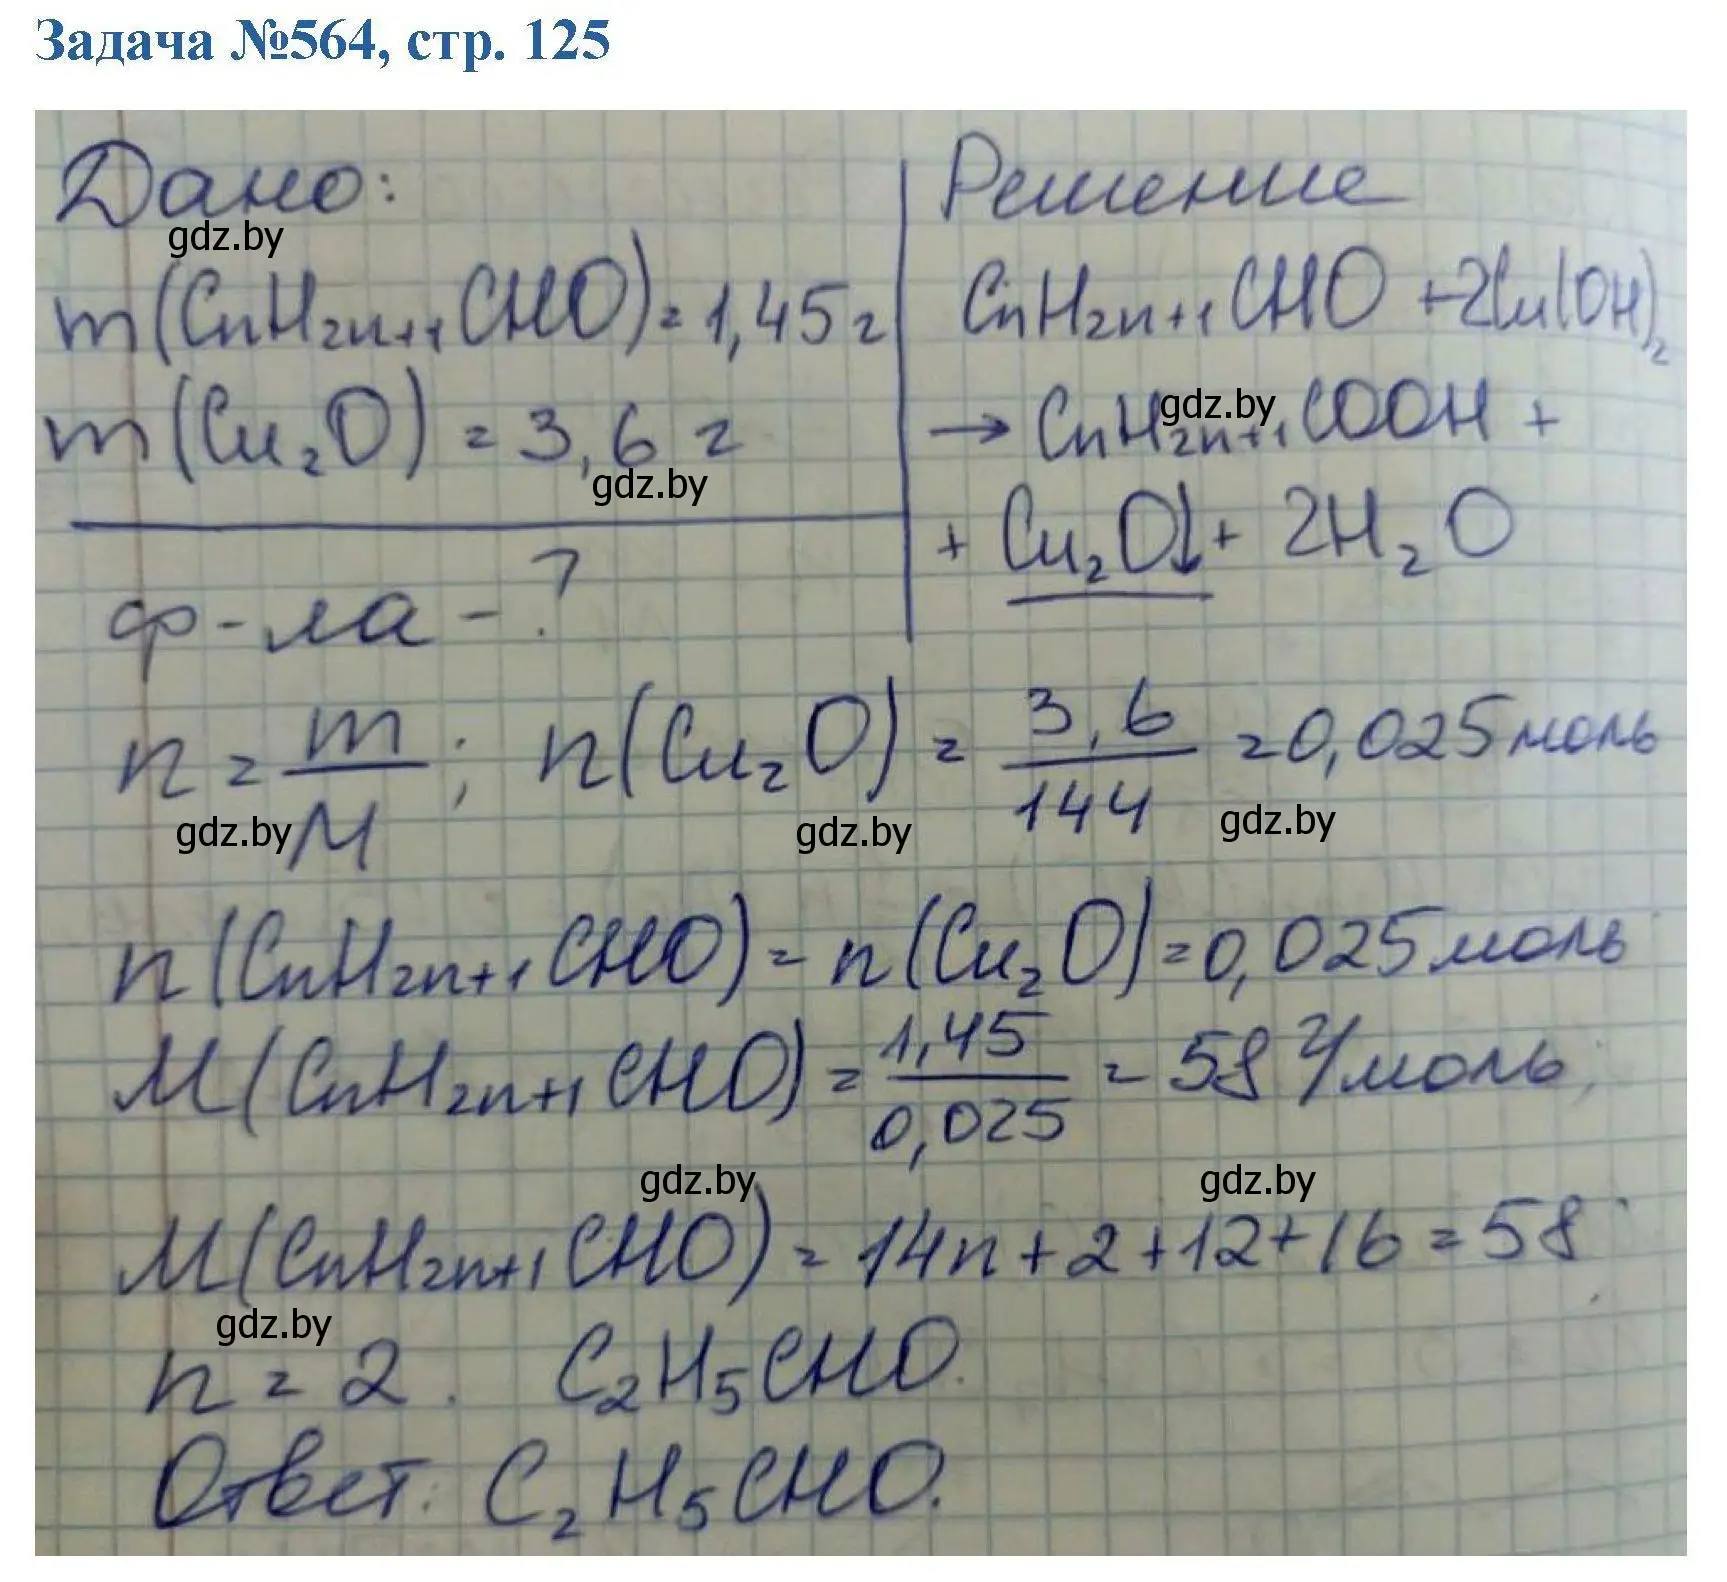 Задача №564, стр. 125
Дано:
gdz.by
m(CnH₂n₊₁CHO) = 1,45 г
m(Cu₂O) = 3,6 г
gdz.by
ф-ла - ?
Решение
CnH₂n₊₁CHO + 2Cu(OH)₂
→ CnH₂n₊₁COOH +
gdz.by
+ Cu₂O↓ + 2H₂O
n = m/M; n(Cu₂O) = 3,6/144 = 0,025 моль
gdz.by gdz.by gdz.by
n(CnH₂n₊₁CHO) = n(Cu₂O) = 0,025 моль
M(CnH₂n₊₁CHO) = 1,45/0,025 = 58 г/моль;
gdz.by gdz.by
M(CnH₂n₊₁CHO) = 14n + 2 + 12 + 16 = 58
gdz.by
n = 2. C₂H₅CHO.
Ответ: C₂H₅CHO.